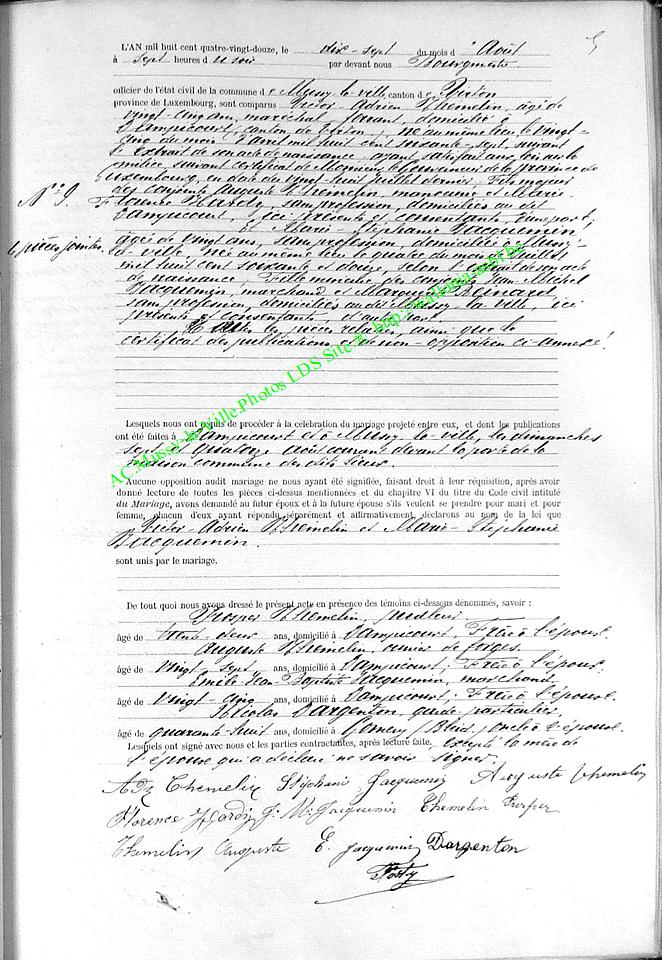 L'AN mil huit cent quatre-vingt-douze, le dix-sept du mois d'Août
à sept heures du soir par devant nous Bourgmestre
officier de l'état civil de la commune de Mussy-la-ville, canton de Virton
province de Luxembourg, sont comparus Victor-Adrien Themelin, âgé de
vingt-cinq ans, maréchal ferrant, domicilié à
canton de Virton, né au même lieu le vingt-
cinq du mois d'avril mil huit cent soixante-sept, suivant
l'extrait de son acte de naissance, ayant satisfait aux lois sur la
milice, suivant certificat de Monsieur le Gouverneur de la province de
Luxembourg, en date du vingt-huit juillet dernier. Fils majeur
N° 9.
des conjoints Auguste Themelin, and Marie-
Florence Hardy, sans profession, domiciliés au dit
Dampicourt, ici présents et consentants, d'une part;
et Marie-Stéphanie Jacquemin
6 pièces jointes
âgée de vingt ans, sans profession, domiciliée à Mussy-
la-ville née au même lieu le quatre du mois de juillet
mil huit cent soixante et douze, selon extrait de son acte
de naissance. Fille mineure des conjoints Jean-Michel
Jacquemin, marchand et Marguerite
sans profession, domiciliés au dit Mussy-la-ville, ici
présents et consentants, d'autre part.
les pièces relatées ainsi que le
certificat des publications et de non-opposition ci-annexé!
AC.Mussy-la-Ville.Photos LDS Site
Lesquels nous ont requis de procéder à la célébration du mariage projeté entre eux, et dont les publications
ont été faites à Dampicourt et à Mussy-la-ville, les dimanches
sept et quatorze août courant devant la porte de la
maison commune des dits lieux.
Aucune opposition audit mariage ne nous ayant été signifiée, faisant droit à leur réquisition, après avoir
donné lecture de toutes les pièces ci-dessus mentionnées et du chapitre VI du titre du Code civil intitulé
du Mariage, avons demandé au futur époux et à la future épouse s'ils veulent se prendre pour mari et pour
femme, chacun d'eux ayant répondu séparément et affirmativement, déclarons au nom de la loi que
Victor-Adrien Themelin et Marie-Stéphanie
Jacquemin.
sont unis par le mariage.
De tout quoi nous avons dressé le présent acte en présence des témoins ci-dessous dénommés, savoir :
Prosper Themelin,
âgé de trente-deux ans, domicilié à Dampicourt, Frère à l'époux.
Auguste Themelin, ouvrier de forges.
âgé de vingt-sept ans, domicilié à Dampicourt, Frère à l'époux.
Emile-Jean-Baptiste Jacquemin, marchand
âgé de vingt-cinq ans, domicilié à Dampicourt, Frère à l'épouse.
Nicolas Dargenton, garde particulier
âgé de quarante-huit ans, domicilié à Gomery (Bleid), oncle à l'épouse.
Lesquels ont signé avec nous et les parties contractantes, après lecture faite, excepté la mère de
l'épouse qui a déclaré ne savoir signer.
Themelin Stéphanie Jacquemin Auguste Themelin
Florence Hardy J. M. Jacquemin Themelin Prosper
Themelin Auguste E. Jacquemin Dargenton